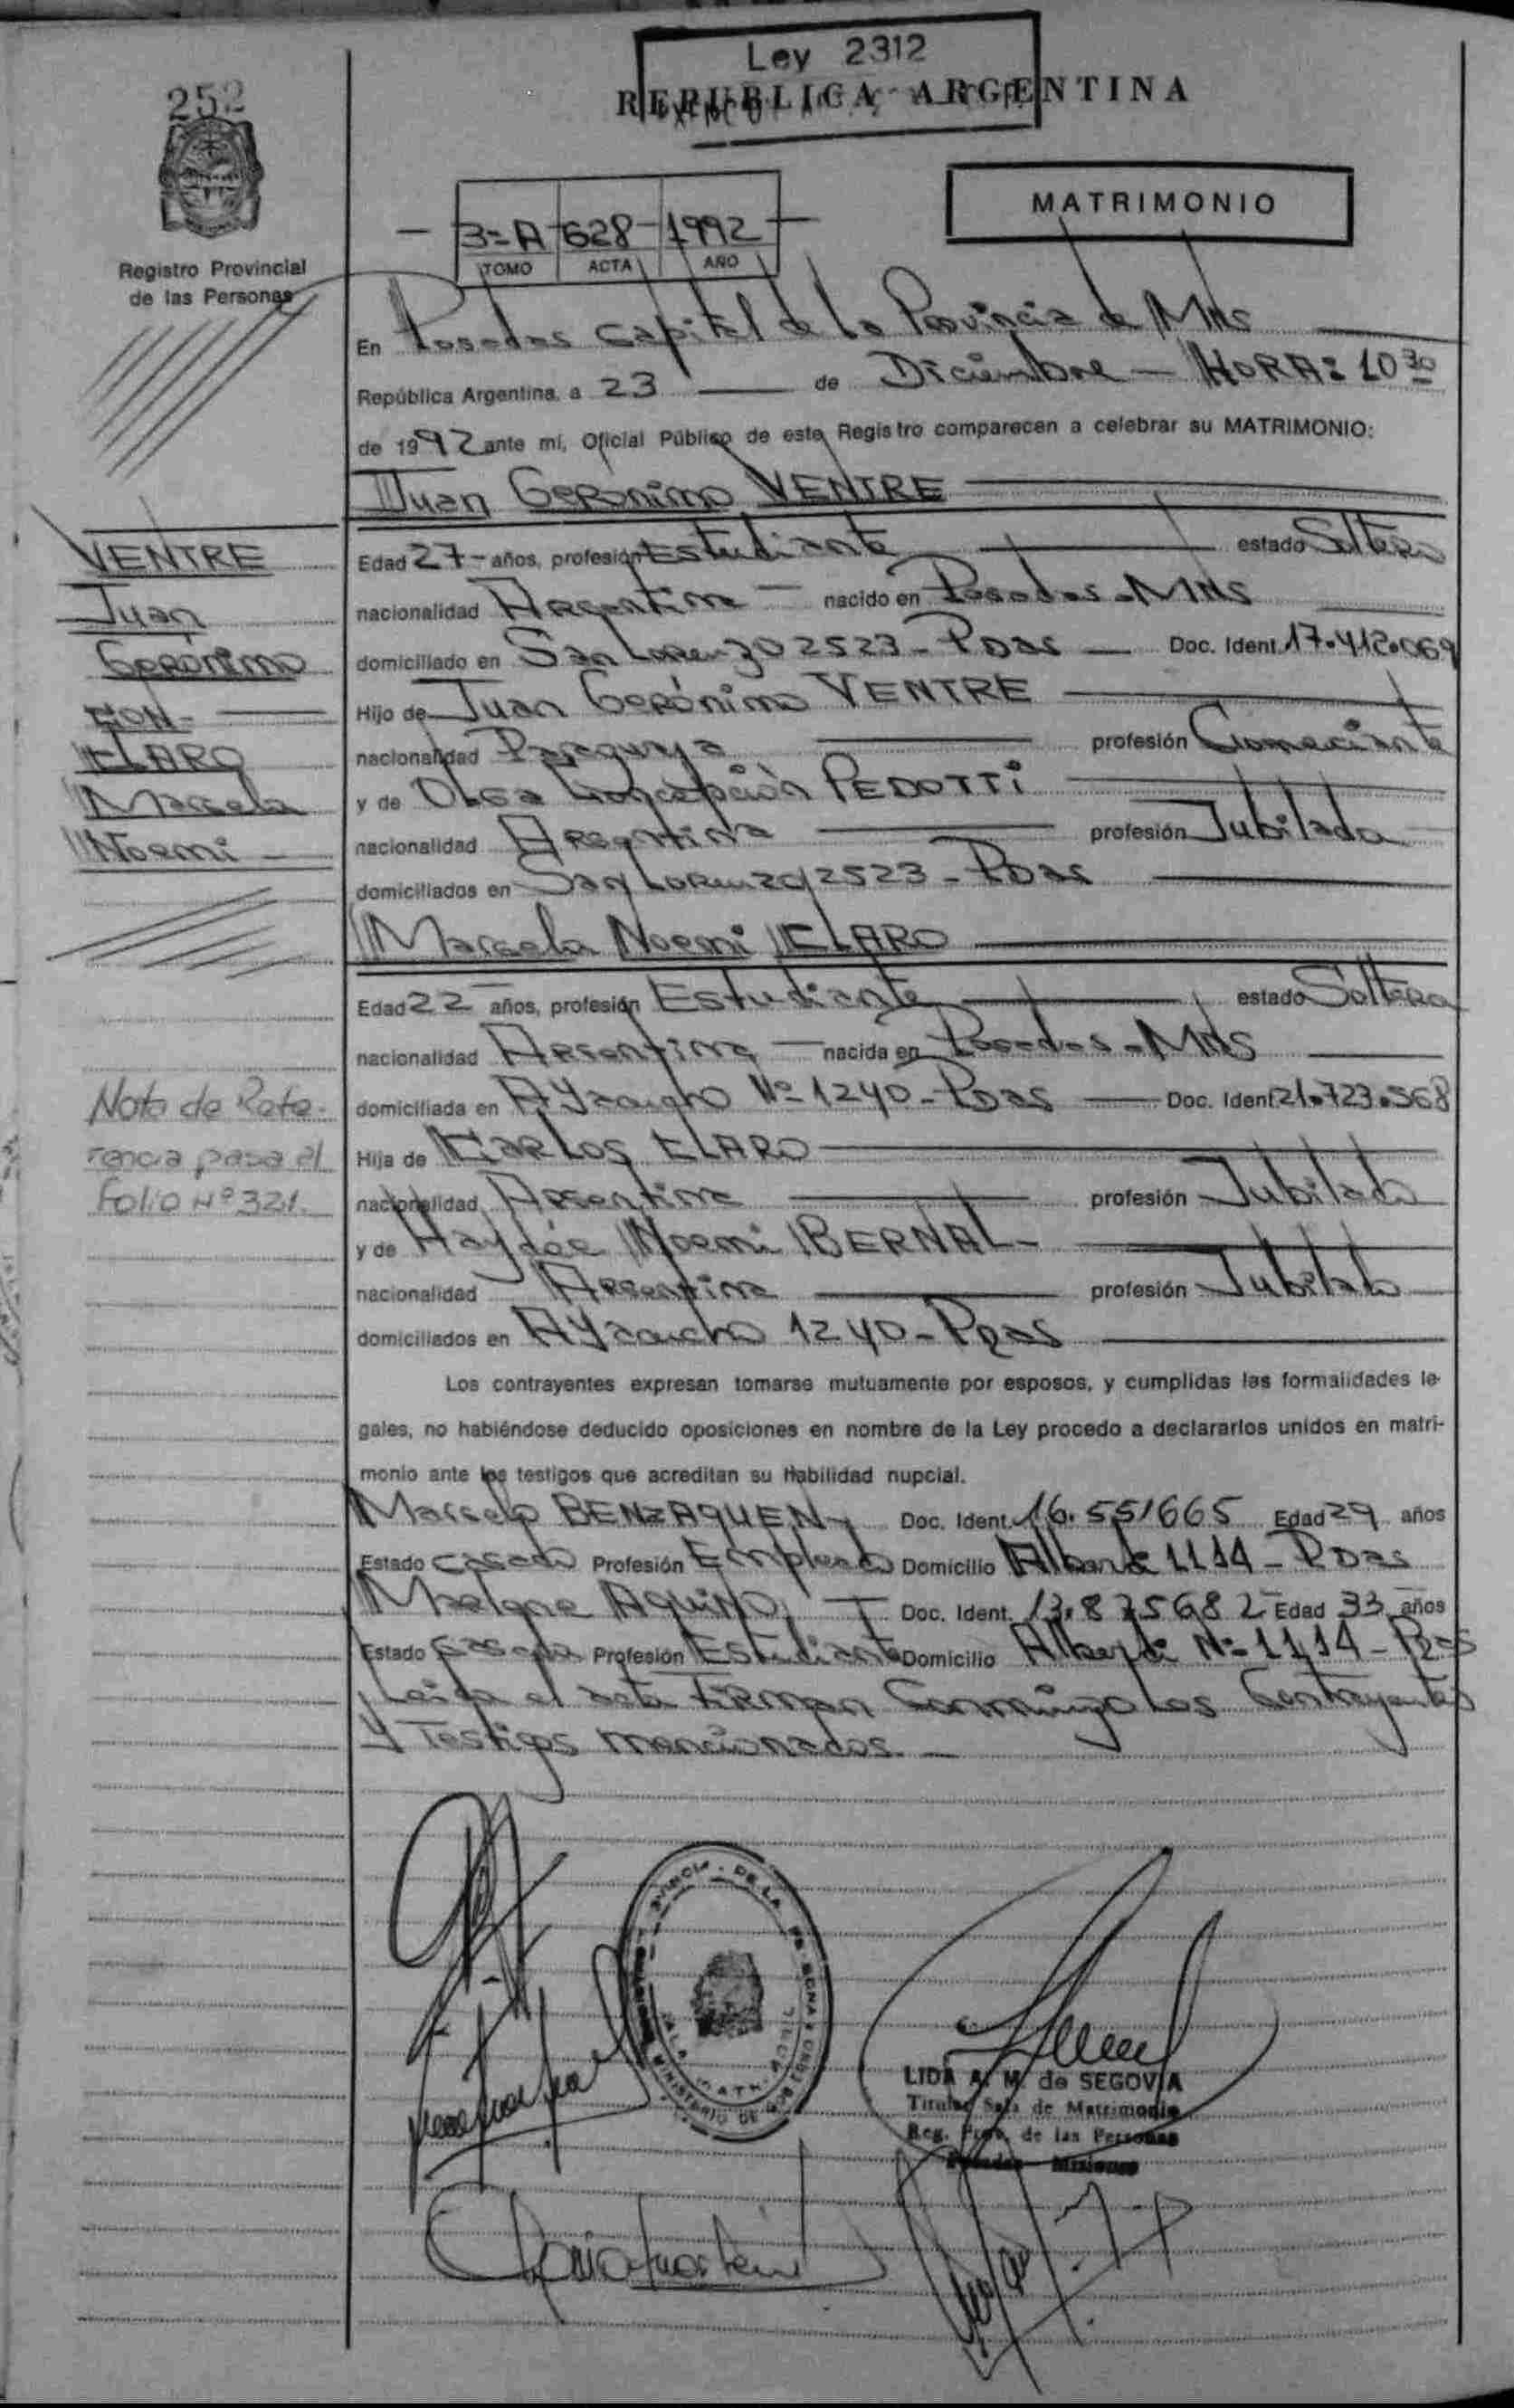 Ley 2312
REPUBLICA ARGENTINA
252
MATRIMONIO
3=A 628 1992
TOMO ACTA AÑO
Registro Provincial
de las Personas
En Posadas Capital de la Provincia de MNS
República Argentina, a 23 de Diciembre - HORA: 10 30
de 1992 ante mí, Oficial Público de este Registro comparecen a celebrar su MATRIMONIO:
Juan Gerónimo VENTRE
VENTRE
Juan
Gerónimo
CON-
CLARO
Marcela
Noemi
Edad 27- años, profesión Estudiante estado Soltero
nacionalidad Argentina nacido en Posadas - MNS
domiciliado en San Lorenzo 2523 - Pdas Doc. Ident. 17.412.069
Hijo de Juan Gerónimo VENTRE
nacionalidad Paraguaya profesión Comerciante
y de Olga Concepción PEDOTTI
nacionalidad Argentina profesión Jubilada
domiciliados en San Lorenzo 2523 - Pdas
Marcela Noemi CLARO
Edad 22 años, profesión Estudiante estado Soltera
nacionalidad Argentina nacida en Posadas - MNS
domiciliada en AYacucho Nº 1240 - Pdas Doc. Ident 21.723.568
Nota de Refe-
rencia pasa al
Folio Nº 321.
Hija de Carlos CLARO
nacionalidad Argentina profesión Jubilado
y de Haydée Noemi BERNAL-
nacionalidad Argentina profesión Jubilada
domiciliados en AYacucho 1240 - Pdas
Los contrayentes expresan tomarse mutuamente por esposos, y cumplidas las formalidades le-
gales, no habiéndose deducido oposiciones en nombre de la Ley procedo a declararlos unidos en matri-
monio ante los testigos que acreditan su Habilidad nupcial.
Marcelo BENZAQUEN Doc. Ident. 16.551665 Edad 29 años
Estado casado Profesión Empleado Domicilio Alberdi 1114 - Pdas
AQUINO Doc. Ident. 13.875682 Edad 33 años
Estado Casada Profesión Estudiante Domicilio Alberdi Nº 1114 - Pdas
Leída el acta firman Conmigo los Contrayentes
y Testigos mencionados.
LIDA A. M. de SEGOVIA
Titular Sala de Matrimonio
Reg. Prov. de las Personas
Posadas Misiones